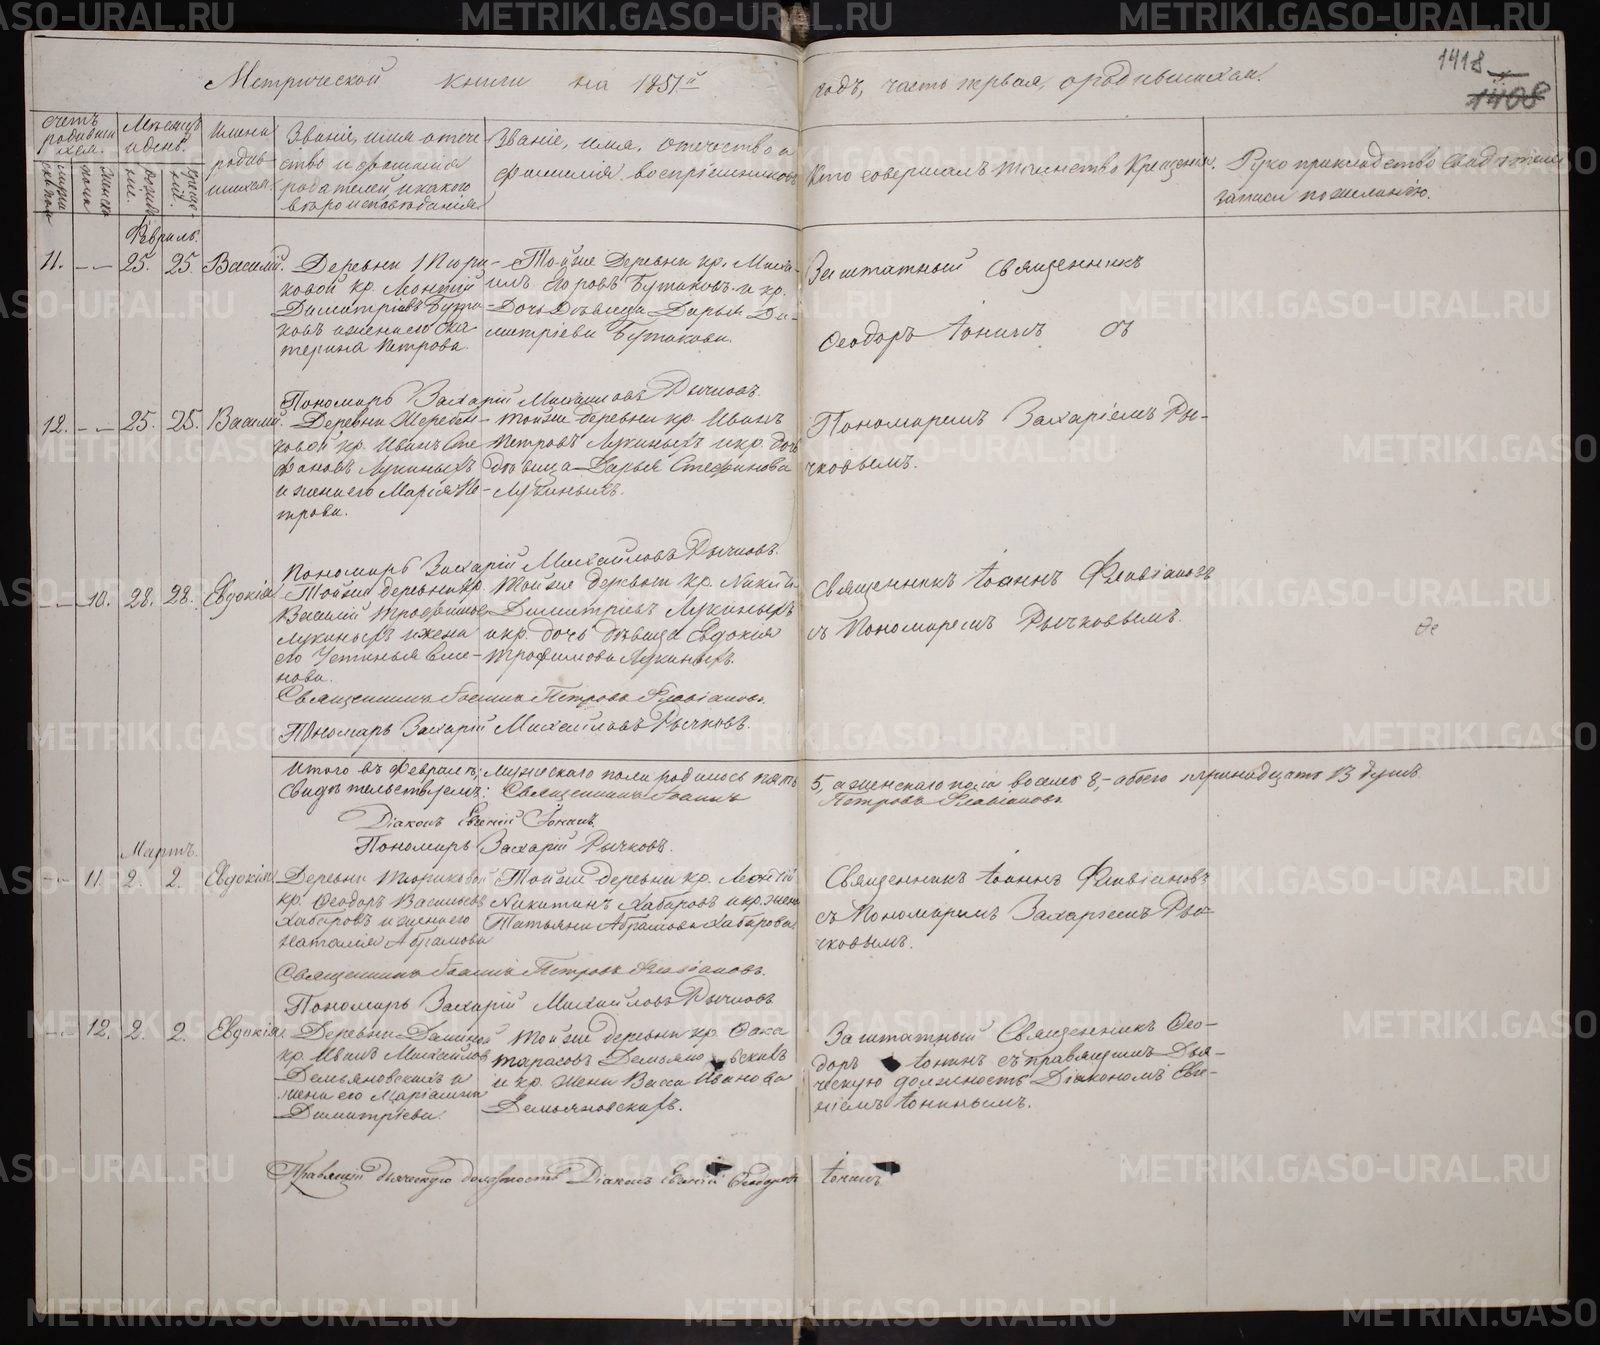 METRIKI.GASO-URAL.RU
1418
1408
Метрической книги на 1851й годъ, часть первая, о родившихся.
Счетъ родившихся.
Мѣсяцъ и день.
Имена родившихся.
Званіе, имя, отечество и фамилія родителей, и какого вѣроисповѣданія.
Званіе, имя, отечество и фамилія воспріемниковъ.
Кто совершалъ таинство Крещенія.
Рукоприкладство свидѣтелей записи по желанію.
Февраль.
11. 25. 25. Василій.
кр. Леонтій
Димитріевъ Бута-
ковъ и жена его Ека-
терина Петрова.
Тойже Деревни кр. Миха-
илъ Бутаковъ и кр.
Дочь Дѣвица Дарья Ди-
митріева Бутакова.
Заштатный Священникъ
Ѳеодоръ Іонинъ съ
Пономаремъ Захаріемъ Ры-
чковымъ.
Пономарь Захарій Михайловъ Рычковъ.
12. 25. 25. Василій.
ковой кр. Иванъ Сте-
фановъ Лукиныхъ
и жена его Марія Пе-
трова.
Тойже деревни кр. Иванъ
Петровъ Лукиныхъ и кр. дочь
дѣвица Дарья Стефанова
Лукиныхъ.
Пономарь Захарій Михайловъ Рычковъ.
10. 28. 28. Евдокія
Тойже деревни кр.
Василій Трофимовъ
Лукиныхъ и жена
его Устинья Семе-
нова.
Тойже деревни кр. Никита
Димитріевъ Лукиныхъ
и кр. дочь дѣвица Евдокія
Трофимова Лукиныхъ.
Священникъ Іоаннъ Флавіановъ
съ Пономаремъ Рычковымъ.
Священникъ Іоаннъ Петровъ Флавіановъ.
Пономарь Захарій Михайловъ Рычковъ.
Итого въ Февралѣ: мужескаго пола родилось пять 5, а женскаго пола восемь 8, обоего тринадцать 13 душъ
Свидѣтельствуемъ: Священникъ Іоаннъ Петровъ Флавіановъ
Діаконъ Евгеній Іонинъ.
Пономарь Захарій Рычковъ.
Мартъ.
11. 2. 2. Евдокія
Деревни Тюриковой
кр. Ѳеодоръ Васильевъ
Хабаровъ и жена его
Наталія Абрамова
Тойже деревни кр. Леонтій
Никитинъ Хабаровъ и кр. жена
Татьяна Абрамова Хабарова
Священникъ Іоаннъ Флавіановъ
съ Пономаремъ Захаріемъ Ры-
чковымъ.
Священникъ Іоаннъ Петровъ Флавіановъ.
Пономарь Захарій Михайловъ Рычковъ
12. 2. 2. Евдокія
кр. Иванъ Михайловъ
Демьяновскихъ и
жена его Маріамна
Димитріева.
Тойже деревни кр. Ѳока
Тарасовъ Демьяновскихъ
и кр. жена Васса Иванова
Демьяновскихъ.
Заштатный Священникъ Ѳео-
доръ Іонинъ съ правящимъ Дья-
ческую должность Діакономъ Евге-
ніемъ Іонинымъ.
Правящій дьяческую должность Діаконъ Евгеній Ѳеодоровъ Іонинъ